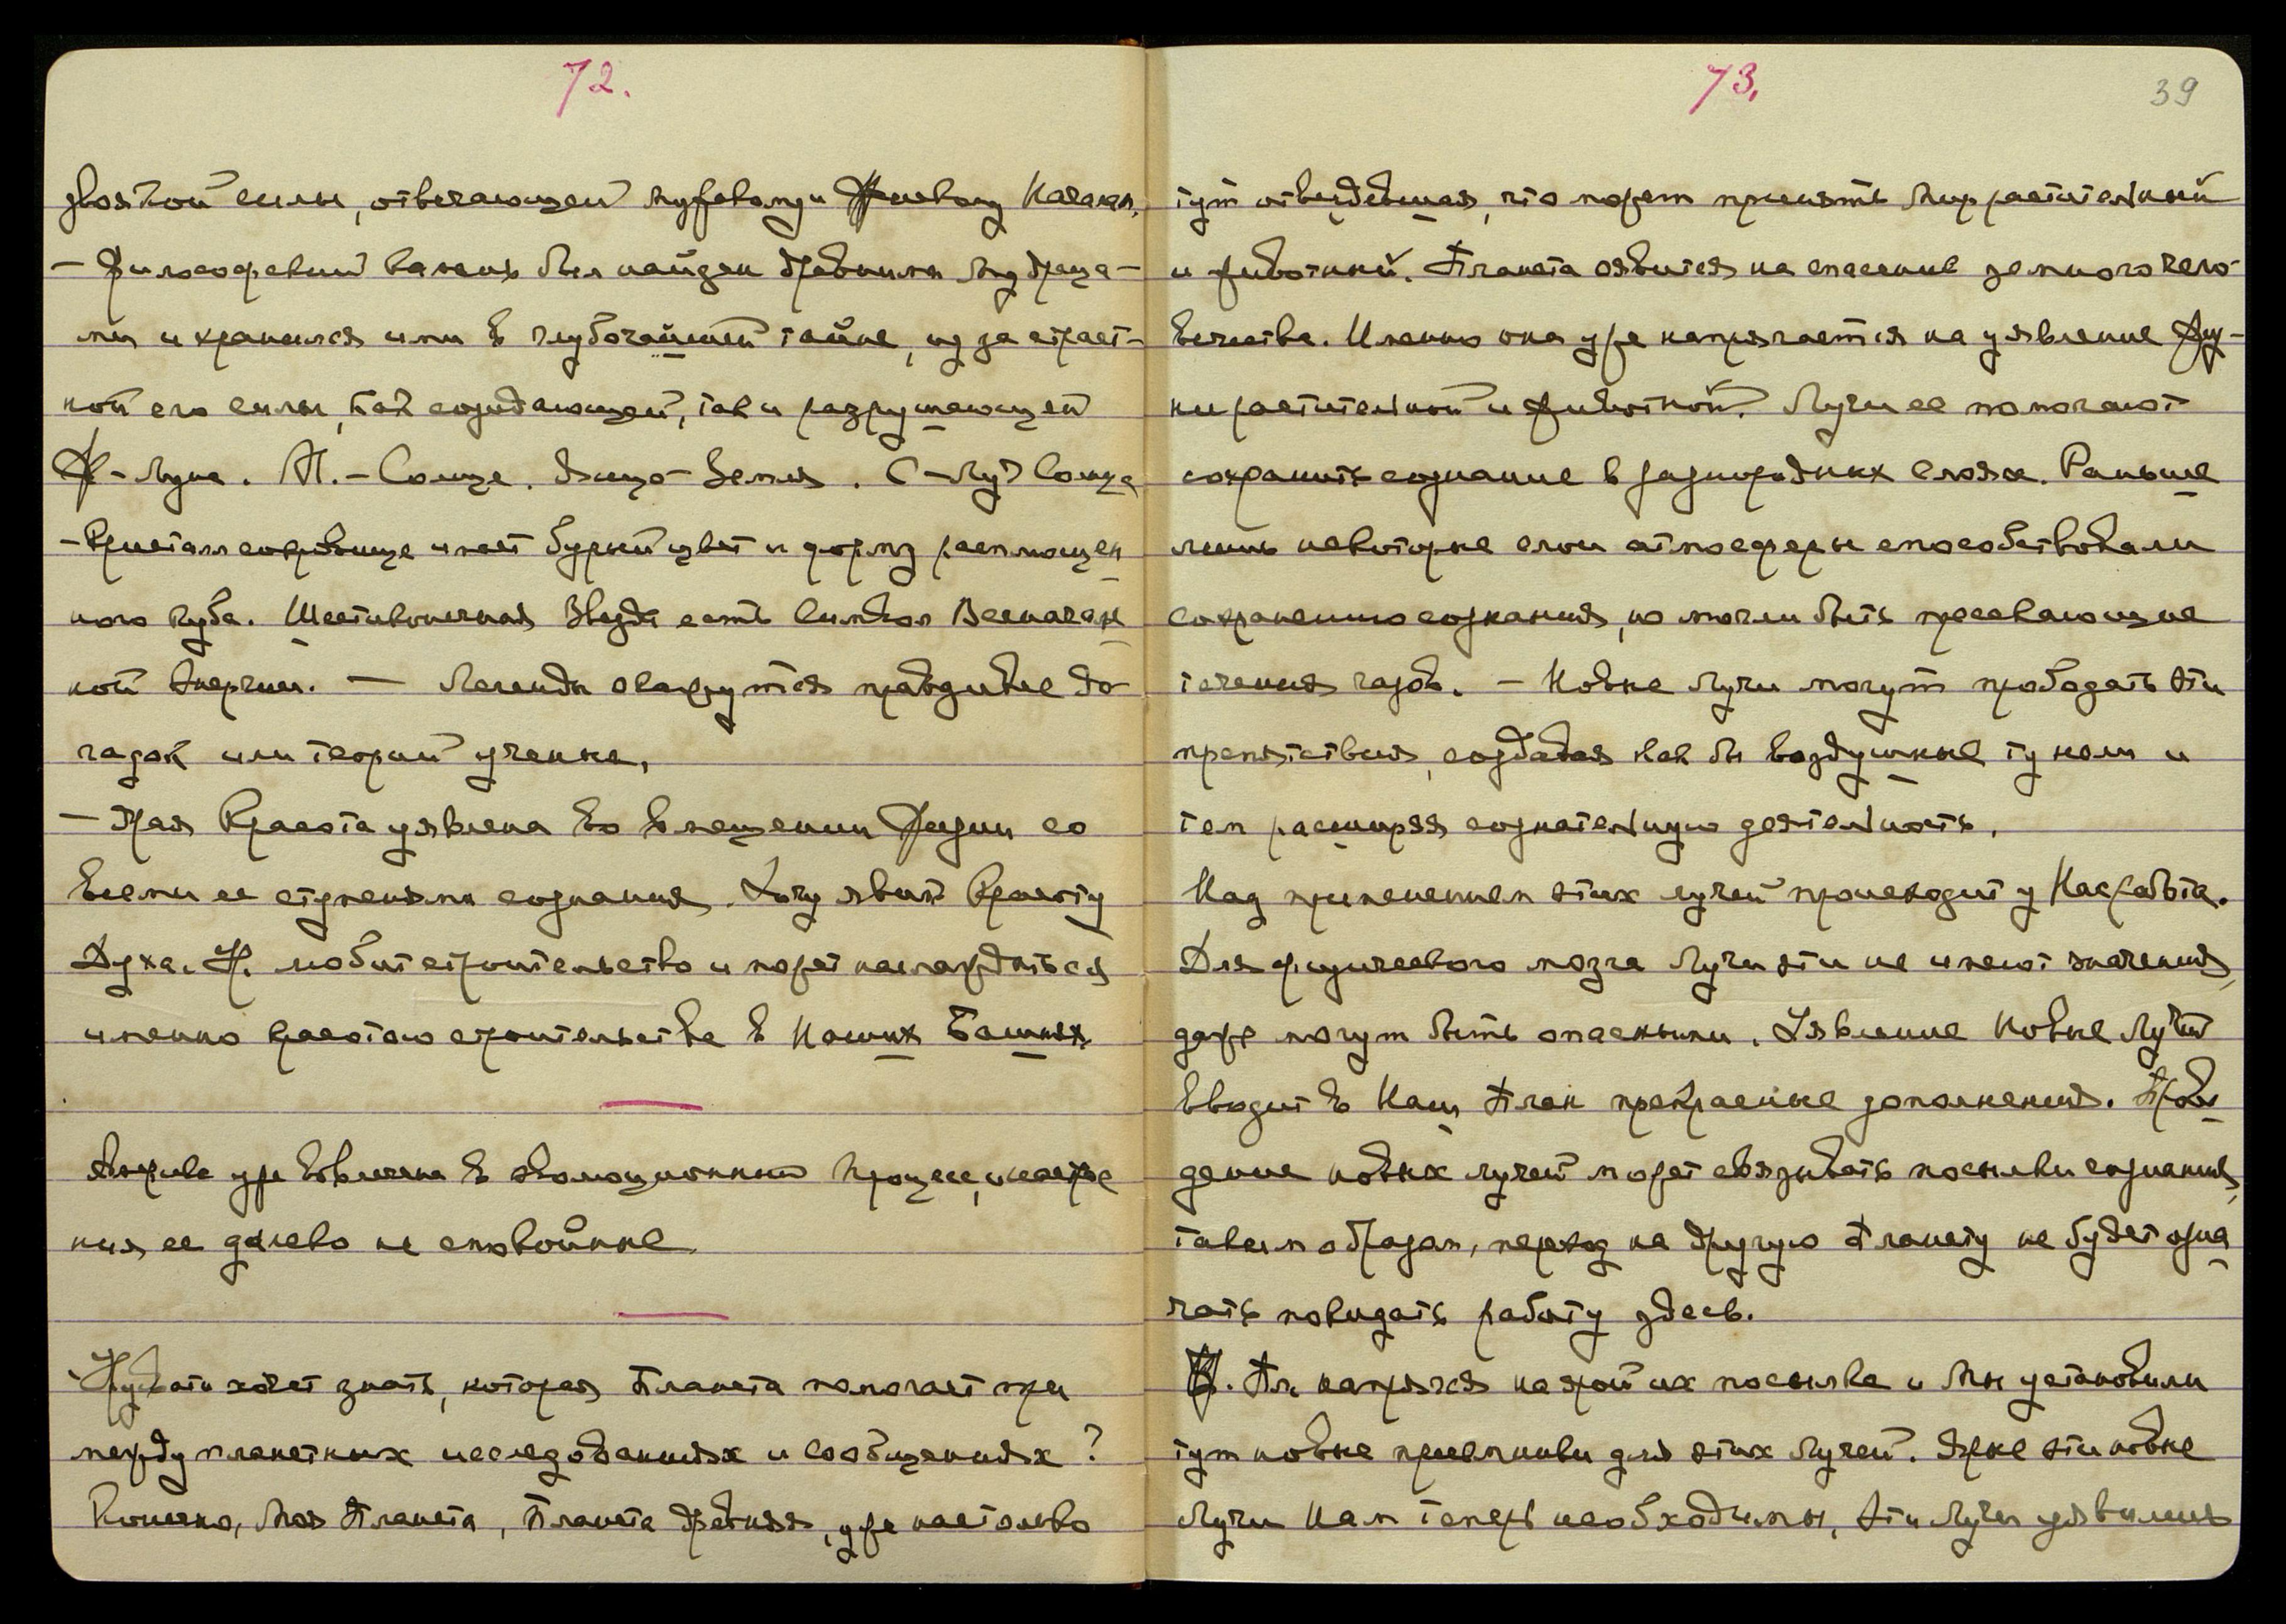 72.
двоякой силы, отвечающей мужскому и женскому Началам.
— Философский камень был найден древними мудреца-
ми и хранился ими в глубочайшей тайне, из за страст-
ной его силы, как созидающей, так и разрушающей
Ж-Луна. М.-Солнце. Яйцо-Земля. С-Луч Солнца
- Кристалл сокровище имеет бурый цвет и форму расплющен
ного куба. Шестиконечная Звезда есть символ Всеначаль
ной Энергии. — Легенды окажутся правдивее до-
гадок или теорий ученых.
— Моя Красота уявлена во
всеми ее ступенями сознания. Хочу явить Красоту
Духа. Н. любит строительство и может наслаждаться
именно красотою строительства в Наших Башнях.
Америка уже вовлечена в эволюционный процесс,
ния ее далеко не спокойные
Урусвати хочет знать, которая Планета помогает при
междупланетных исследованиях и сообщениях?
Конечно, Моя Планета, Планета древняя, уже настолько
73.
39
тут отвердевшая, что может принять Мир растительный
и животный. Планета явится на спасение земного чело-
вечества. Именно она уже напрягается на уявление жиз-
ни растительной и животной. Лучи ее помогают
сохранить сознание в разнородных слоях. Раньше
лишь некоторые слои атмосферы способствовали
сохранению сознания, но могли быть пресекающие
течения газов. — Новые Лучи могут прободать эти
препятствия, создавая как бы воздушные тунели и
тем расширяя сознательную деятельность.
Над применением этих лучей происходит у Нас работа.
Для физического мозга Лучи эти не имеют значения,
даже могут быть опасными. Уявление Новые Лучи
вводит в Наш План прекрасные дополнения. Прове
дение новых лучей может связывать посылки сознания,
таким образом, переход на другую Планету не будет озна
чать покидать работу здесь.
посылка и Мы установили
тут новые приемники для этих Лучей. эти новые
Лучи Нам теперь необходимы, эти Лучи уявились